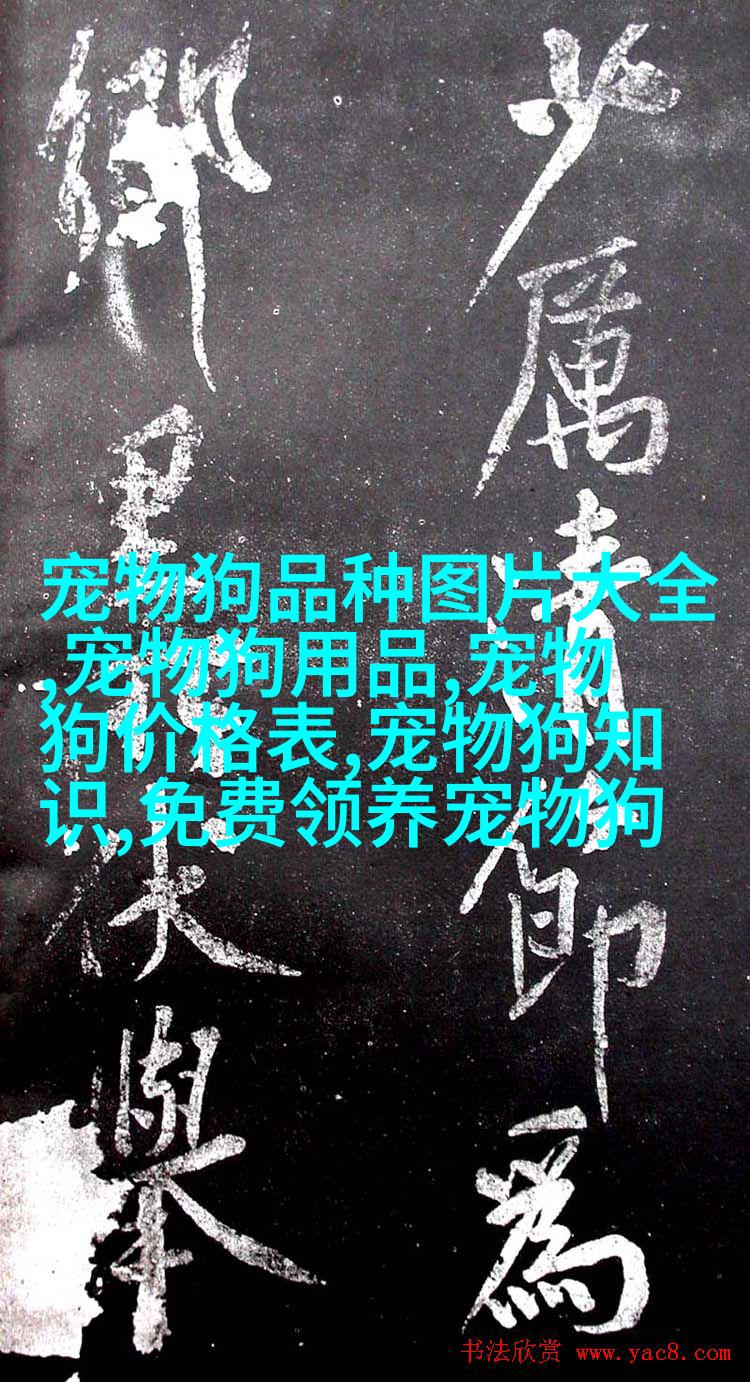 少厲清節為
鄉里伏舉
宠物狗品种图片大全
,宠物狗用品,宠物
狗价格表,宠物狗知
识,免费领养宠物狗
书法欣赏 www.yac8.com